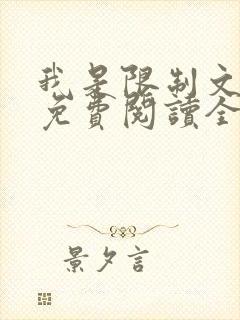 我是限制文
免費閱讀全
景夕言